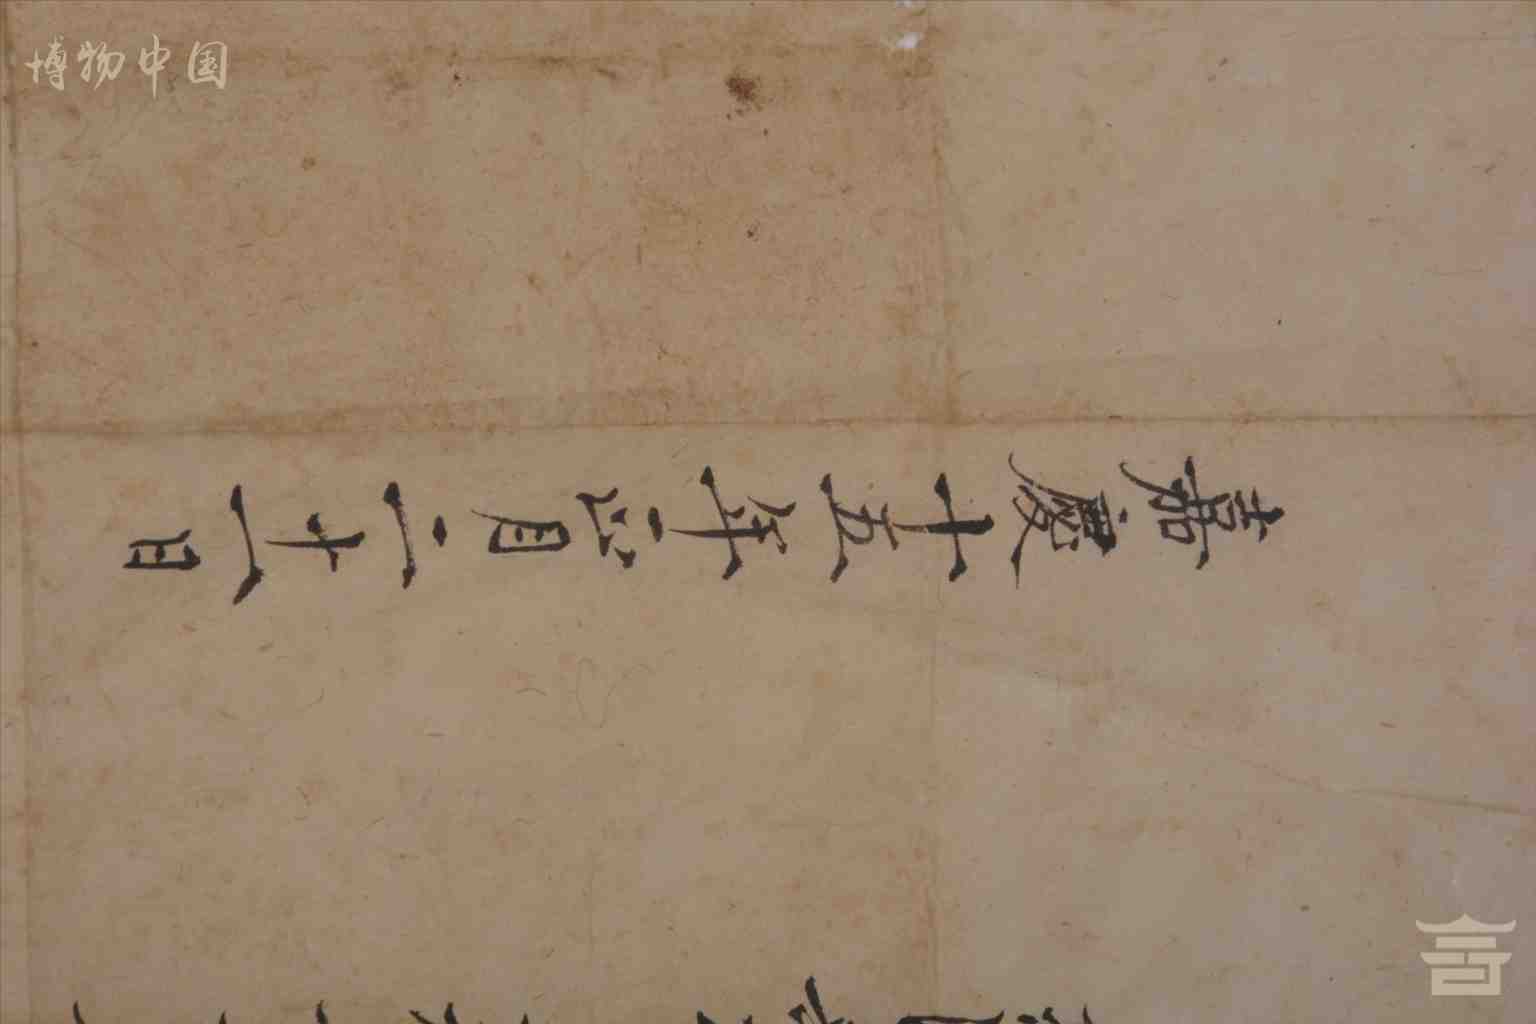 博物中国
嘉慶十五年六月二十一日